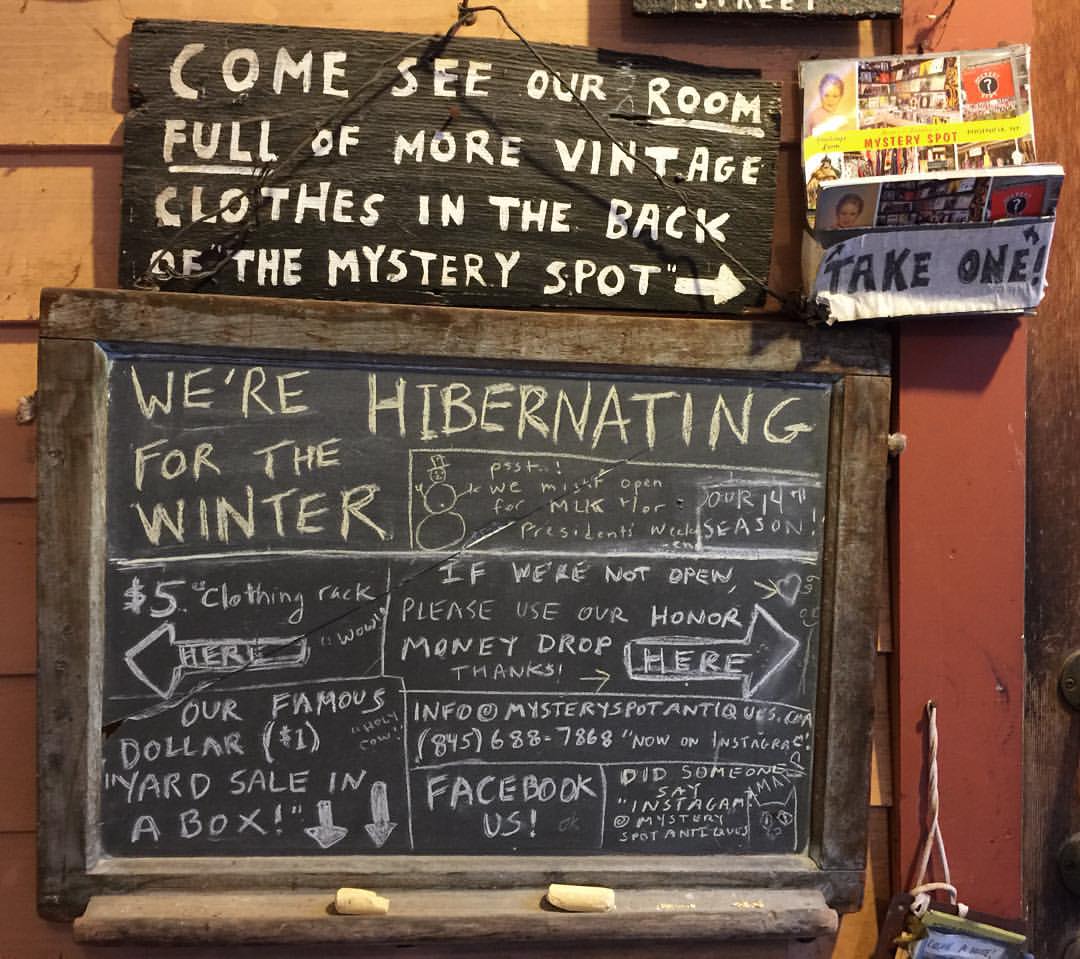 STREET
COME SEE OUR ROOM
FULL OF MORE VINTAGE
CLOTHES IN THE BACK
OF "THE MYSTERY SPOT"
MYSTERY SPOT
PHOENICIA, NY
"TAKE ONE!"
WE'RE HIBERNATING
FOR THE
WINTER
psst..!
we might open
for MLK +/or
Presidents' week
-end
OUR 14TH
SEASON!
$5 Clothing rack
"WOW!"
HERE
IF WE'RE NOT OPEN,
PLEASE USE OUR HONOR
MONEY DROP
THANKS!
HERE
OUR FAMOUS
DOLLAR ($1)
"HOLY
COW!"
"YARD SALE IN
A BOX!"
INFO@MYSTERYSPOTANTIQUES.COM
(845) 688-7868 "NOW ON INSTAGRAM!
FACEBOOK
US! ok
DID SOMEONE
SAY
"INSTAGAM"
@MYSTERY
SPOTANTIQUES